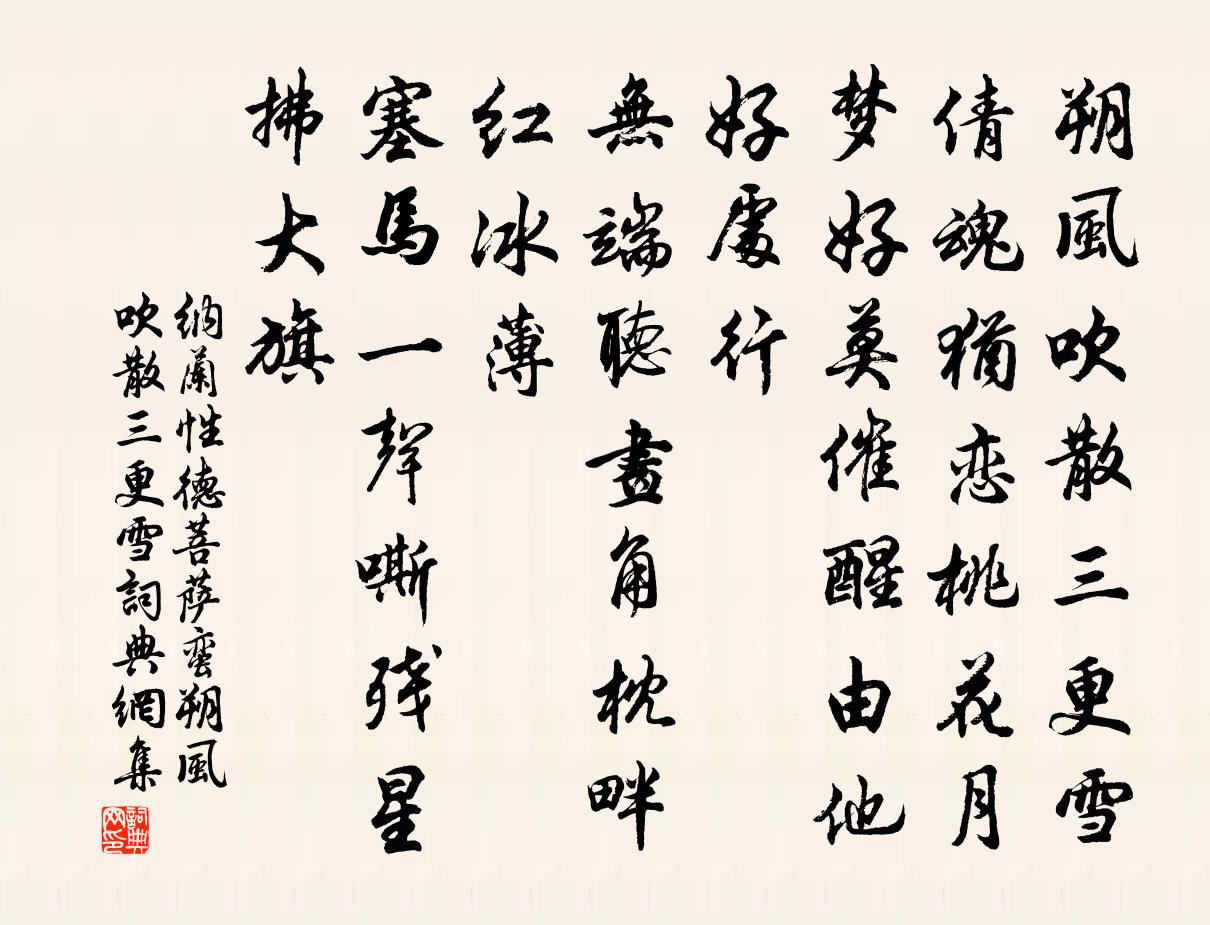 朔風吹散三更雪
倩魂猶恋桃花月
梦好莫催醒由他
好處行
無端聽畫角枕畔
红冰薄
塞馬一聲嘶残星
拂大旗
纳蘭性德菩萨蛮朔風
吹散三更雪詞典網集
詞典
网印